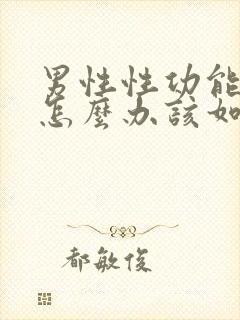 男性性功能
怎麼办該如
都敏俊